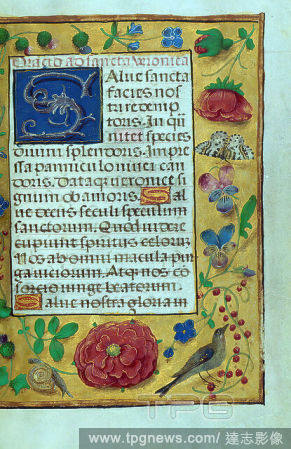 Oracio ad sancta veronica
Salue sancta
facies nos
tri redemp
toris. In qua
nitet species
diuini splendoris. Impre
ssa panniculo niuei can
doris. Dataque veronice si
gnum ob amoris. Sal
ue decus seculi speculum
sanctorum. Quod videre
cupiunt spiritus celorum
Nos ab omni macula pur
ga viciorum. Atque nos co
sorcio iunge beatorum.
Salue nostra gloria in
TPG
www.tpgnews.com/ 達志影像